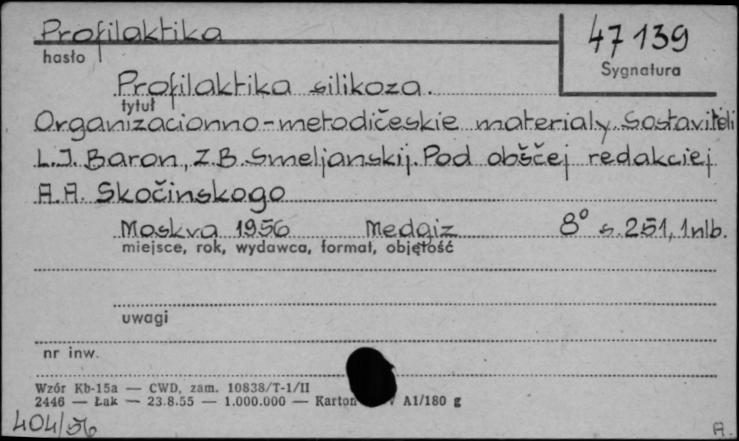 Profilaktika
hasło
47 139
Sygnatura
Profilaktika silikoza.
tytuł
Organizacionno-metodičeskie materialy. Sostaviteli
L.I. Baron, Z.B. Smeljanskij. Pod obščej redakciej
A.A. Skočinskogo
Moskva 1956 Medgiz 8° s. 251, 1 nlb.
miejsce, rok, wydawca, format, objętość
uwagi
nr inw.
Wzór Kb-15a — CWD, zam. 10838/T-1/II
2446 — Łak — 23.8.55 — 1.000.000 — Karton A1/180 g
404/56
A.